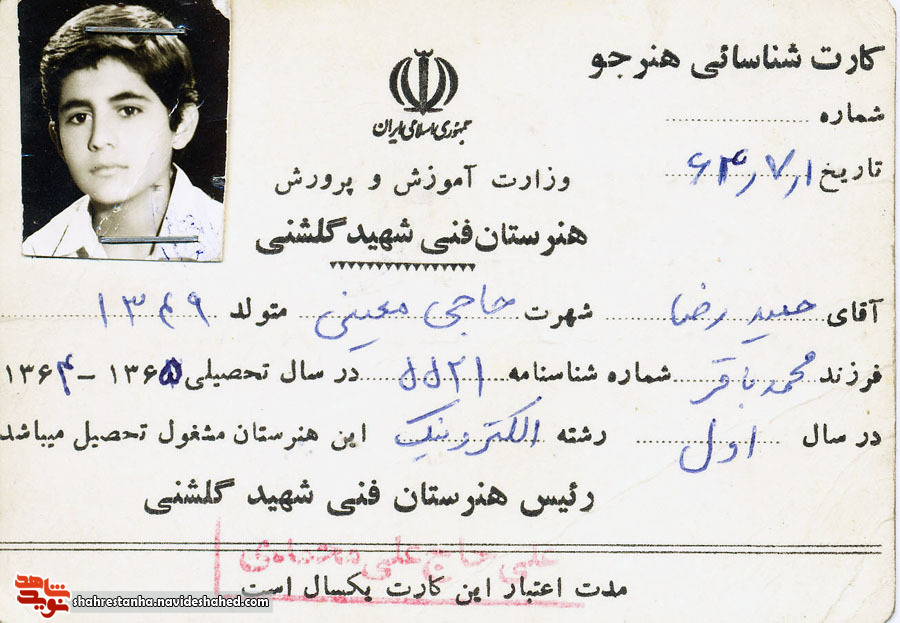 کارت شناسائی هنرجو
جمهوری اسلامی ایران
شماره
تاریخ ۶۴٫۷٫۱
وزارت آموزش و پرورش
هنرستان فنی شهید گلشنی
آقای حمید رضا شهرت حاجی معینی متولد ۱۳۴۹
فرزند محمد باقر شماره شناسنامه ۵۵۲۱ در سال تحصیلی ۱۳۶۵-۱۳۶۴
در سال اول رشته الکترونیک این هنرستان مشغول تحصیل میباشد
رئیس هنرستان فنی شهید گلشنی
علی حاج علی
مدت اعتبار این کارت یکسال است
نوید شاهد shahrestanha.navideshahed.com